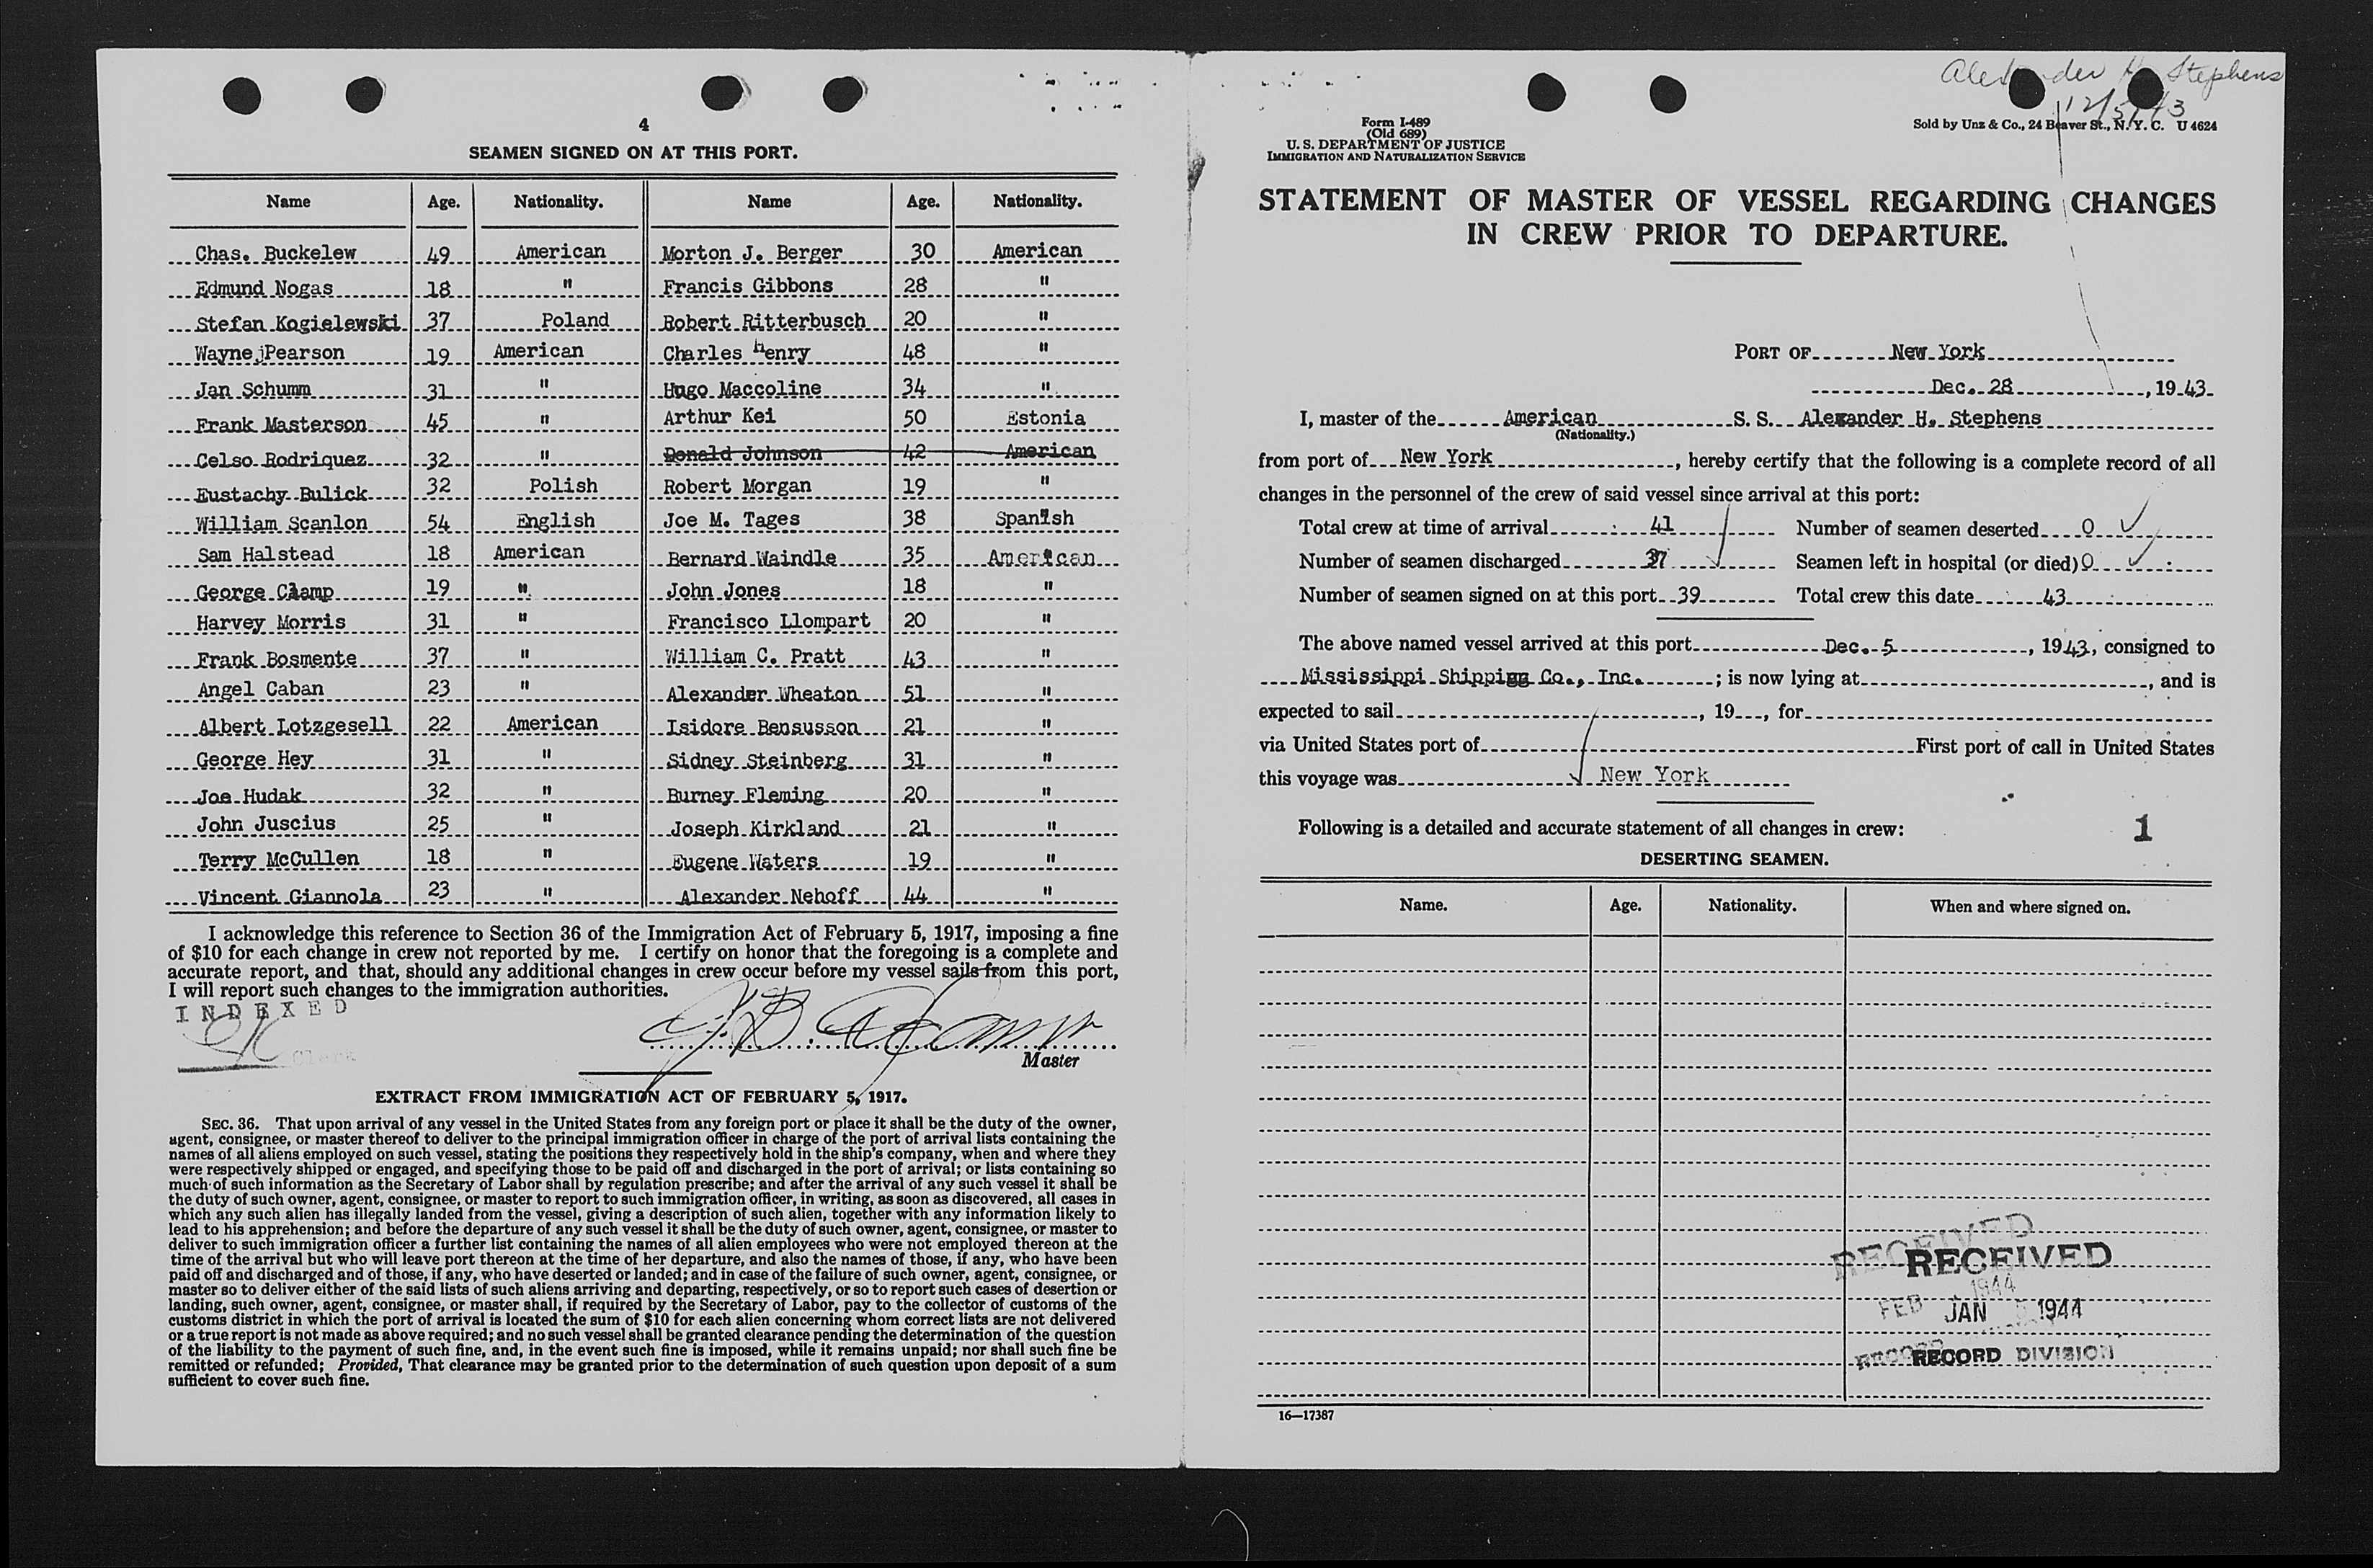 4
SEAMEN SIGNED ON AT THIS PORT.
Name Age. Nationality. Name Age. Nationality.
Chas. Buckelew 49 American Morton J. Berger 30 American
Edmund Nogas 18 " Francis Gibbons 28 "
Stefan Kogielewski 37 Poland Robert Ritterbusch 20 "
Wayne jPearson 19 American Charles Henry 48 "
Jan Schumm 31 " Hugo Maccoline 34 "
Frank Masterson 45 " Arthur Kei 50 Estonia
Celso Rodriquez 32 " Donald Johnson 42 American
Eustachy Bulick 32 Polish Robert Morgan 19 "
William Scanlon 54 English Joe M. Tages 38 Spanish
Sam Halstead 18 American Bernard Waindle 35 American
George Clamp 19 " John Jones 18 "
Harvey Morris 31 " Francisco Llompart 20 "
Frank Bosmente 37 " William C. Pratt 43 "
Angel Caban 23 " Alexander Wheaton 51 "
Albert Lotzgesell 22 American Isidore Bensusson 21 "
George Hey 31 " Sidney Steinberg 31 "
Joe Hudak 32 " Burney Fleming 20 "
John Juscius 25 " Joseph Kirkland 21 "
Terry McCullen 18 " Eugene Waters 19 "
Vincent Giannola 23 " Alexander Nehoff 44 "
I acknowledge this reference to Section 36 of the Immigration Act of February 5, 1917, imposing a fine
of $10 for each change in crew not reported by me. I certify on honor that the foregoing is a complete and
accurate report, and that, should any additional changes in crew occur before my vessel sails from this port,
I will report such changes to the immigration authorities.
INDEXED
Clerk
Master
EXTRACT FROM IMMIGRATION ACT OF FEBRUARY 5, 1917.
SEC. 36. That upon arrival of any vessel in the United States from any foreign port or place it shall be the duty of the owner,
agent, consignee, or master thereof to deliver to the principal immigration officer in charge of the port of arrival lists containing the
names of all aliens employed on such vessel, stating the positions they respectively hold in the ship's company, when and where they
were respectively shipped or engaged, and specifying those to be paid off and discharged in the port of arrival; or lists containing so
much of such information as the Secretary of Labor shall by regulation prescribe; and after the arrival of any such vessel it shall be
the duty of such owner, agent, consignee, or master to report to such immigration officer, in writing, as soon as discovered, all cases in
which any such alien has illegally landed from the vessel, giving a description of such alien, together with any information likely to
lead to his apprehension; and before the departure of any such vessel it shall be the duty of such owner, agent, consignee, or master to
deliver to such immigration officer a further list containing the names of all alien employees who were not employed thereon at the
time of the arrival but who will leave port thereon at the time of her departure, and also the names of those, if any, who have been
paid off and discharged and of those, if any, who have deserted or landed; and in case of the failure of such owner, agent, consignee, or
master so to deliver either of the said lists of such aliens arriving and departing, respectively, or so to report such cases of desertion or
landing, such owner, agent, consignee, or master shall, if required by the Secretary of Labor, pay to the collector of customs of the
customs district in which the port of arrival is located the sum of $10 for each alien concerning whom correct lists are not delivered
or a true report is not made as above required; and no such vessel shall be granted clearance pending the determination of the question
of the liability to the payment of such fine, and, in the event such fine is imposed, while it remains unpaid; nor shall such fine be
remitted or refunded; Provided, That clearance may be granted prior to the determination of such question upon deposit of a sum
sufficient to cover such fine.
Alexander H. Stephens
12/5/43
Form I-489
(Old 689)
U. S. DEPARTMENT OF JUSTICE
IMMIGRATION AND NATURALIZATION SERVICE
Sold by Unz & Co., 24 Beaver St., N. Y. C. U 4624
STATEMENT OF MASTER OF VESSEL REGARDING CHANGES
IN CREW PRIOR TO DEPARTURE.
PORT OF New York
Dec. 28, 1943
I, master of the American S. S. Alexander H. Stephens
(Nationality.)
from port of New York, hereby certify that the following is a complete record of all
changes in the personnel of the crew of said vessel since arrival at this port:
Total crew at time of arrival 41 Number of seamen deserted 0
Number of seamen discharged 37 Seamen left in hospital (or died) 0
Number of seamen signed on at this port 39 Total crew this date 43
The above named vessel arrived at this port Dec. 5, 1943, consigned to
Mississippi Shipping Co., Inc.; is now lying at, and is
expected to sail, 19, for
via United States port of First port of call in United States
this voyage was New York
Following is a detailed and accurate statement of all changes in crew:
1
DESERTING SEAMEN.
Name. Age. Nationality. When and where signed on.
RECEIVED
RECEIVED
FEB 1944
JAN 5 1944
RECORD
RECORD DIVISION
16—17387